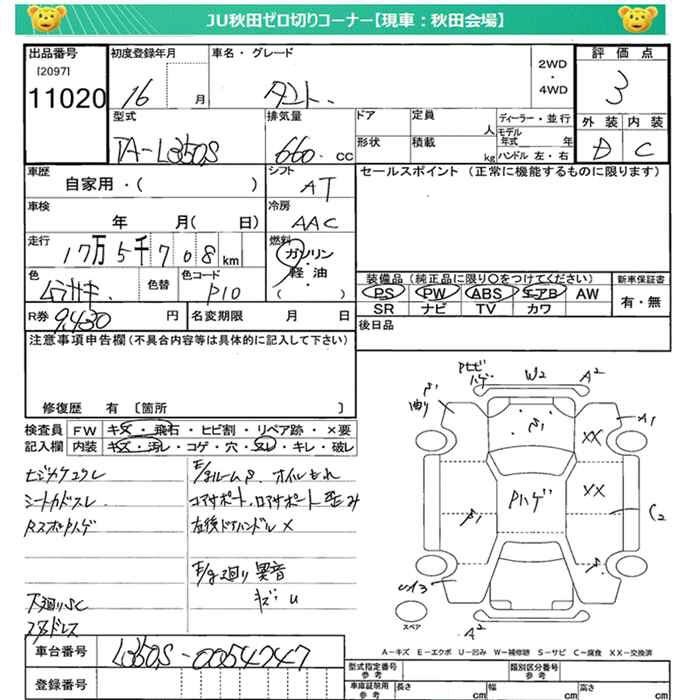 JU秋田ゼロ切りコーナー【現車：秋田会場】
出品番号 初度登録年月 車名・グレード 2WD・4WD 評価点
[2097]
11020 16 月 タント. 3
型式 排気量 ドア 定員 人 ディーラー・並行 外装 内装
TA-L350S 660. cc 形状 積載 kg モデル年式 年 ハンドル 左・右 D C
車歴 シフト セールスポイント (正常に機能するものに限ります)
自家用・( ) AT
車検 冷房
年 月( 日) AAC
走行 燃料
17万5千708km ガソリン
軽・油
( )
色 色替 色コード 装備品 (純正品に限り○をつけてください) 新車保証書
ムラサキ. P10 PS PW ABS エアB AW 有・無
SR ナビ TV カワ
R券 9,430 円 名変期限 月 日 後日品
注意事項申告欄 (不具合内容等は具体的に記入して下さい)
修復歴 有 〔箇所 〕
検査員 FW キズ・飛石・ヒビ割・リペア跡・×要
記入欄 内装 キズ・汚レ・コゲ・穴・スレ・キレ・破レ
E/gルームS. オイルもれ
シートカドスレ コアサポート. ロアサポート 歪み
RスポPハゲ 左後ドアハンドル×
E/g廻り 異音
キズ:U
下廻りSC
スタッドレス
車台番号 L350S-0054747
登録番号
PセビハゲW2 A2
A1
S1
XX
XX
Pハゲ
S1
C2
S1
A2
スペア
A－キズ E－エクボ U－凹み W－補修跡 S－サビ C－腐食 XX－交換済
型式指定番号 参考 類別区分番号 参考
車庫証明用 参考 長さ cm 幅 cm 高さ cm